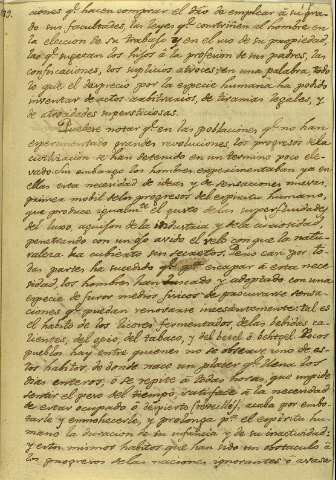 ciones qe. hacen comprar el dro. de emplear à su gra-
do sus facultades, las leyes qe. contriñen al hombre en
la eleccion de su trabajo y en el uso de su propiedad
las qe. sugetan los hijos à la profesion de sus padres, las
confiscaciones, los suplicios atroces; en una palabra, todo
lo que el desprecio por la especie humana ha podido
inventar de actos arbitrarios, de tiranias legales, y
de atrocidades supersticiosas.
Puedese notar qe. en las poblaciones qe. no han
esperimentado grandes revoluciones, los progresos de la
civilizacion se han detenido en un termino poco ele-
vado. Sin embargo los hombres experimentaban ya en
ellas esta necesidad de ideas y de sensaciones nuevas,
primer mobil de los progresos del espiritu humano,
que produce igualmte. el gusto de las superfluidades
del luxo, aguijon de la industria, y de la curiosidad
penetrando con un ojo avido el velo con que la natu-
raleza ha cubierto sus secretos. Pero casi por to-
das partes ha sucedido qe. pa. escapar à esta nece-
sidad, los hombres han buscado y adoptado con una
especie de furor medios fisicos de procurarse sensa-
ciones qe. puedan renovarse incesantemente: tal es
el habito de los licores fermentados, de las bebidas ca-
lientes, del opio, del tabaco, y del betel ò behtpel. Pocos
pueblos hay entre quienes no se observe uno de es-
tos habitos, de donde nace un placer qe. llena los
dias enteros, ò se repite à todas horas, que impide
sentir el peso del tiempo, satisface à la necesidad
de estar ocupado ò despierto, acaba por embo-
tarle y enmohecerle, y prolonga pa. el espiritu hu-
mano la duracion de su infancia y de su inactividad:
y estos mismos habitos que han sido un obstaculo à
los progresos de las naciones ignorantes ò avasa-